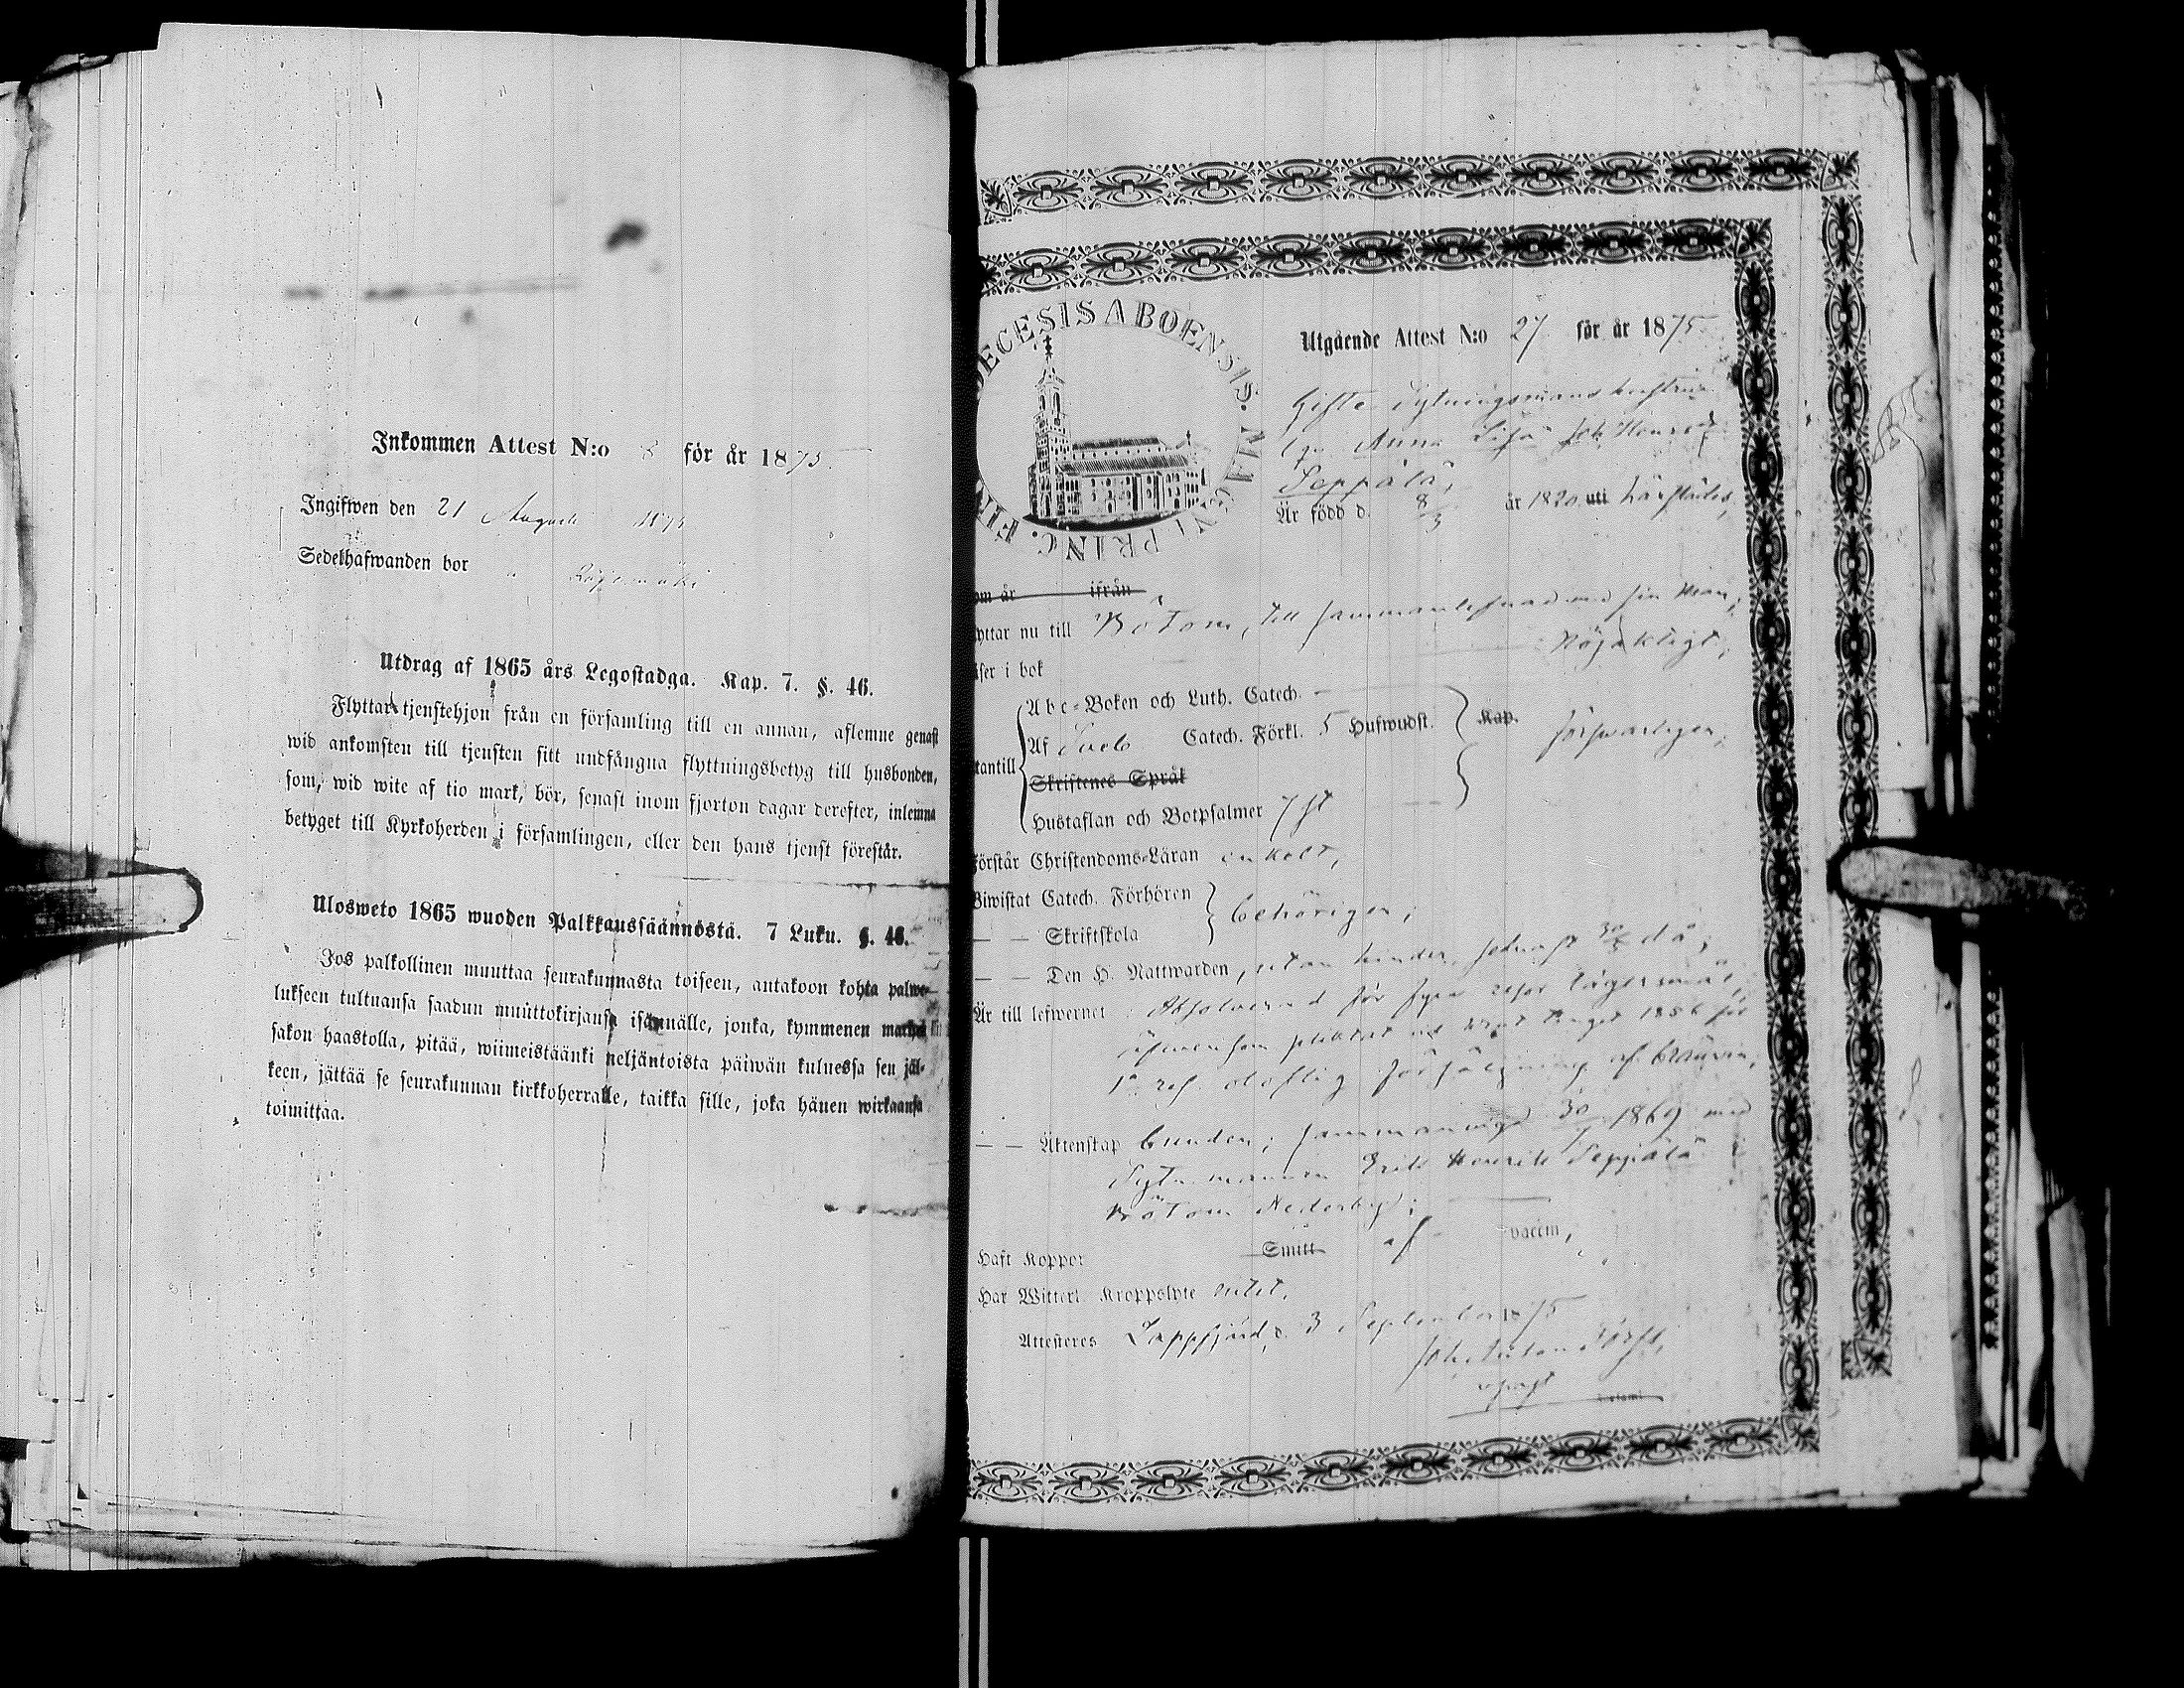 Inkommen Attest N:o 8 för år 1875.
Ingifwen den 21 Augusti 1875
Sedelhafwanden bor
Utdrag af 1865 års Legostadga. Kap. 7. §. 46.
Flyttar tjenstehjon från en församling till en annan, aflemne genast
wid ankomsten till tjensten sitt undfångna flyttningsbetyg till husbonden,
som, wid wite af tio mark, bör, senast inom fjorton dagar derefter, inlemna
betyget till Kyrkoherden i församlingen, eller den hans tjenst förestår.
Ulosweto 1865 wuoden Palkkaussäännöstä. 7 Luku. §. 46.
Jos palkollinen muuttaa seurakunnasta toiseen, antakoon kohta palwe-
lukseen tultuansa saadun muuttokirjansa isännälle, jonka, kymmenen markan
sakon haastolla, pitää, wiimeistäänki neljäntoista päiwän kuluessa sen jäl-
keen, jättää se seurakunnan kirkkoherralle, taikka sille, joka hänen wirkaansa
toimittaa.
DIOECESIS ABOENSIS. MAGNI PRINC. FIN
Utgående Attest N:o 27 för år 1875
Gifte Sytningsmans hustrun
Anna Lisa Joh. Henrsd
Seppälä,
Är född d. 8/3 år 1820 uti härstädes,
om år ifrån
yttar nu till Bötom, till sammanlefnad med sin Man;
äser i bok Nöjaktigt;
Abc-Boken och Luth. Catech.
Af Svebs Catech. Förkl. 5 Hufwudst. Kap. försvarligen;
tantill
Skriftenes Språk
Hustaflan och Botpsalmer 7 st
Förstår Christendoms-Läran enkelt,
Biwistat Catech. Förhören
behörigen;
— — Skriftskola
— — Den H. Nattwarden, utan hinder, sednast 30/5 d å;
Är till lefwernet: Absolverad för fyra resor lägersmål,
äfvensom pliktat vid Tinget 1856 för
1a res. oloflig försäljning af bränvin,
— — Äktenskap bunden; sammanvigd 30 1869 med
Sytn.mannen Erik Henrik Seppälä i
Bötom Nederby;
Haft Koppor Smitt af vaccin,
Har Witterl. Kroppslyte intet.
Attesteres Lappfjärd d. 3 September 1875